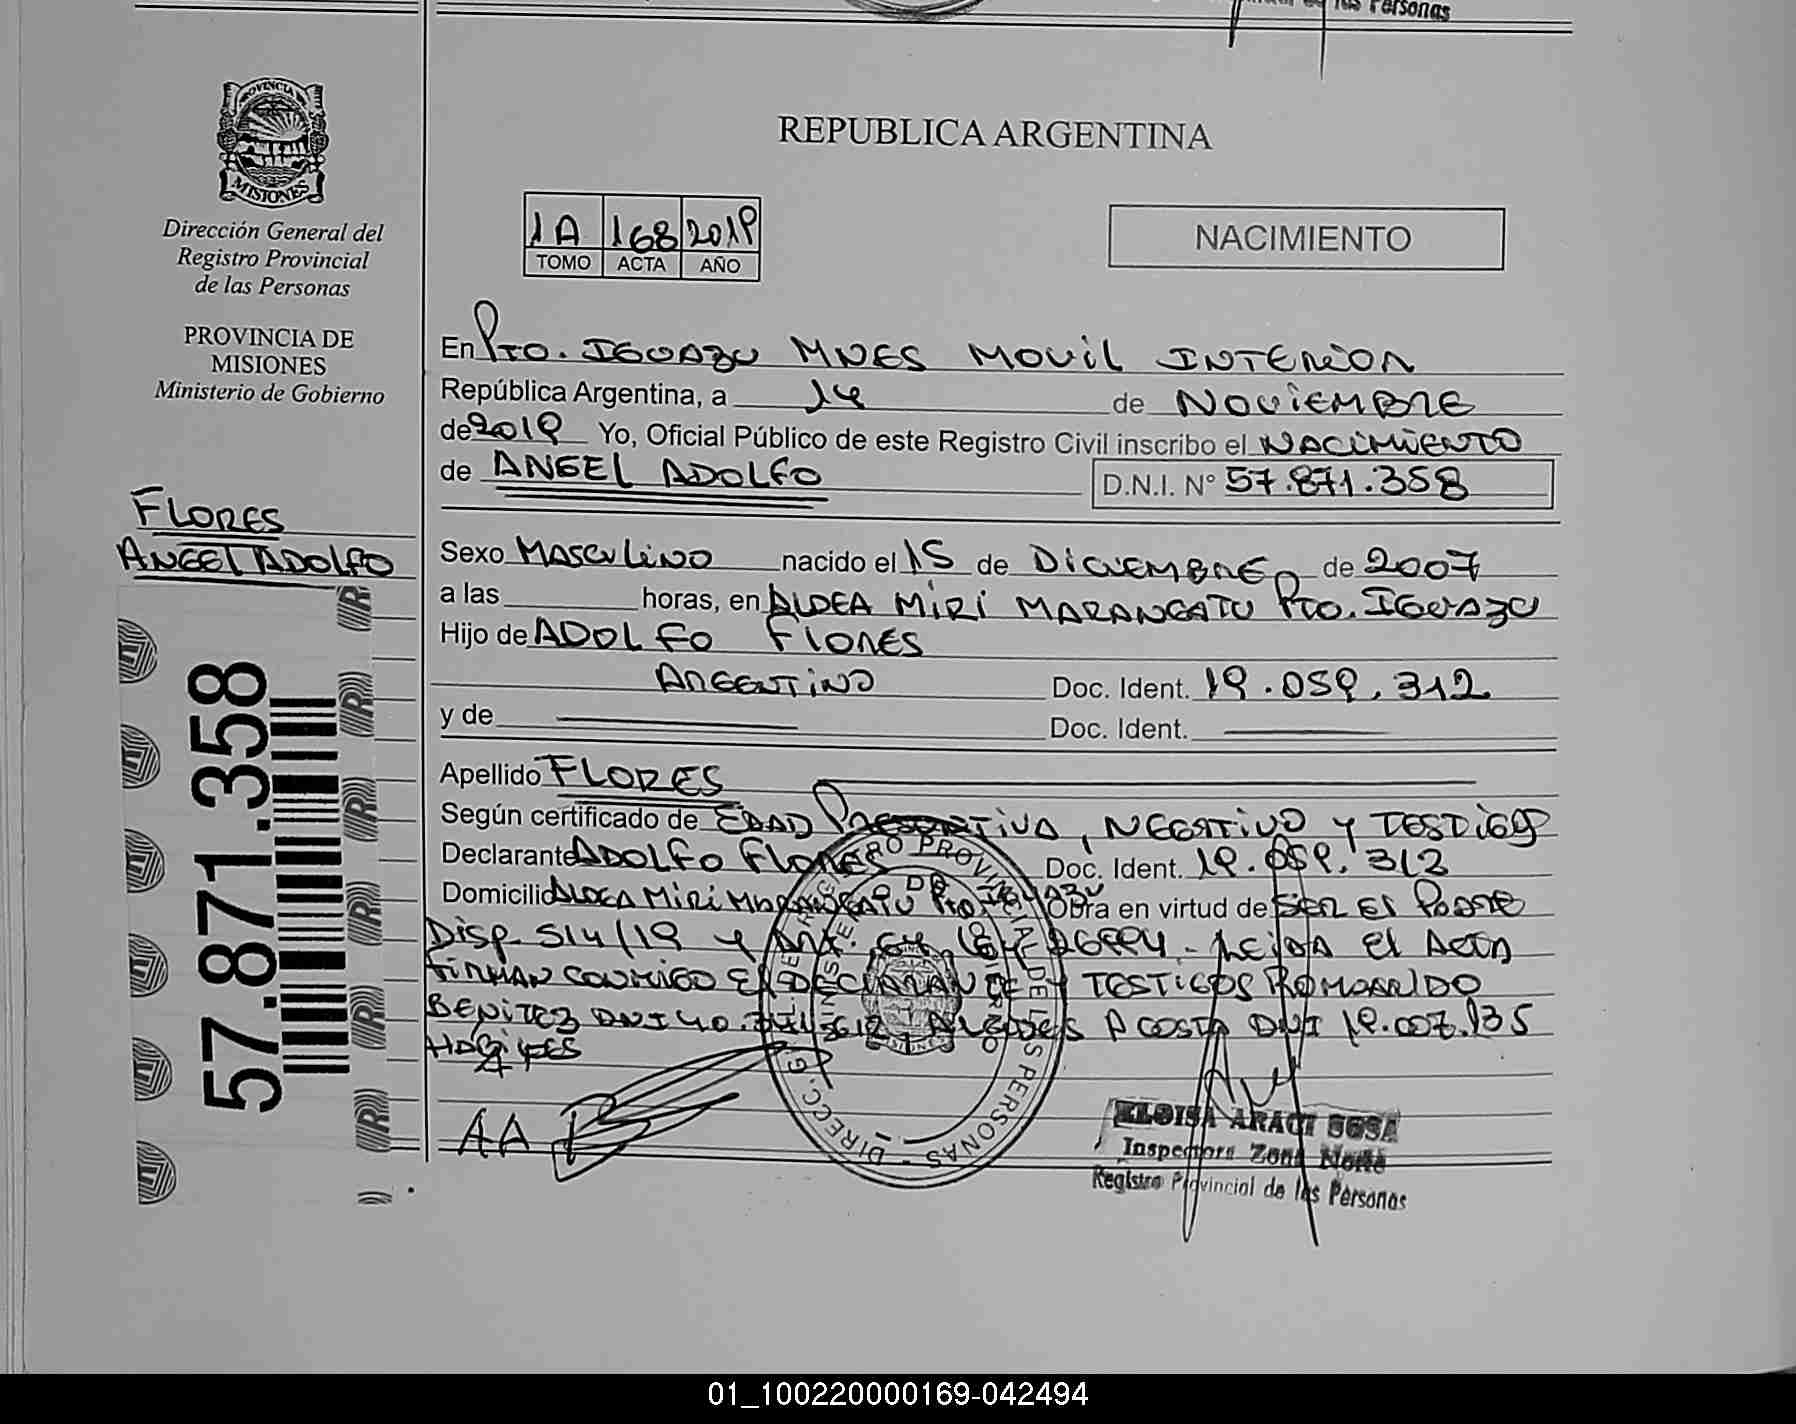 las Personas
PROVINCIA DE
MISIONES
Dirección General del
Registro Provincial
de las Personas
PROVINCIA DE
MISIONES
Ministerio de Gobierno
FLORES
ANGEL ADOLFO
57.871.358
REPUBLICA ARGENTINA
1A 168 2019
TOMO ACTA AÑO
NACIMIENTO
En Pto. IGUAZU MNES MOVIL INTERIOR
República Argentina, a 14 de NOVIEMBRE
de 2019 Yo, Oficial Público de este Registro Civil inscribo el NACIMIENTO
de ANGEL ADOLFO D.N.I. N° 57.871.358
Sexo MASCULINO nacido el 15 de DICIEMBRE de 2007
a las horas, en ALDEA MIRI MARANGATU Pto. IGUAZU
Hijo de ADOLFO FLORES
ARGENTINO Doc. Ident. 19.059.312
y de Doc. Ident.
Apellido FLORES
Según certificado de EDAD PRESUNTIVA, NEGATIVO Y TESTIGOS
Declarante ADOLFO FLORES Doc. Ident. 19.059.312
Domicilio ALDEA MIRI MARANGATU Pto. IGUAZU Obra en virtud de SER EL PADRE
DISP. 514/19 Y LEY LEIDA EL ACTA
FIRMAN CONMIGO EL DECLARANTE Y TESTIGOS ROMUALDO
BENITEZ DNI 40. ACOSTA DNI 19.007.135
HABILES
AA
DIRECC. GRAL. DEL REGISTRO PROVINCIAL DE LAS PERSONAS
MINISTERIO DE GOBIERNO
ELOISA ARACI SOSA
Inspectora Zona Norte
Registro Provincial de las Personas
01_100220000169-042494